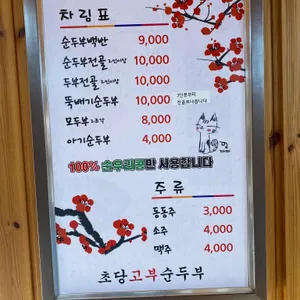 차림표
순두부백반 9,000
순두부전골 2인이상 10,000
두부전골 2인이상 10,000
뚝배기순두부 10,000
모두부 8,000
아기순두부 4,000
100% 순우리콩만 사용합니다
주류
동동주 3,000
소주 4,000
맥주 4,000
초당고부순두부